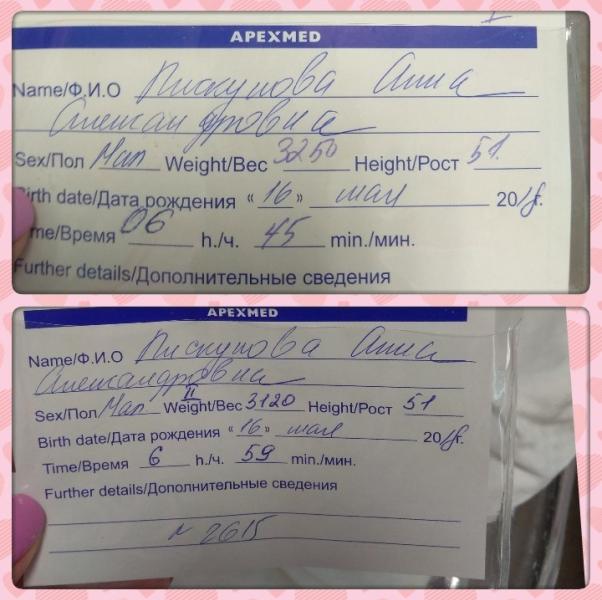 I
APEXMED
Name/Ф.И.О Пискунова Анна
Александровна
Sex/Пол Мал Weight/Вес 3250 Height/Рост 51.
Birth date/Дата рождения «16» мая 2018г.
me/Время 06 h./ч. 45 min./мин.
Further details/Дополнительные сведения
APEXMED
Name/Ф.И.О Пискунова Анна
Александровна
II
Sex/Пол Мал Weight/Вес 3120 Height/Рост 51
Birth date/Дата рождения «16» мая 2018г.
Time/Время 6 h./ч. 59 min./мин.
Further details/Дополнительные сведения
N 2615